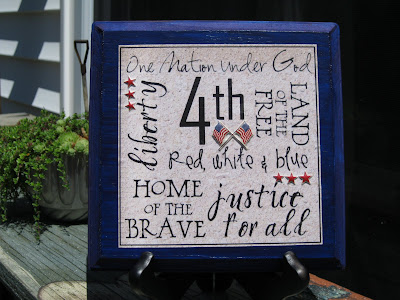 One Nation Under God
liberty
4th
LAND
OF THE
FREE
Red, white & blue
HOME
OF THE
BRAVE
justice
for all